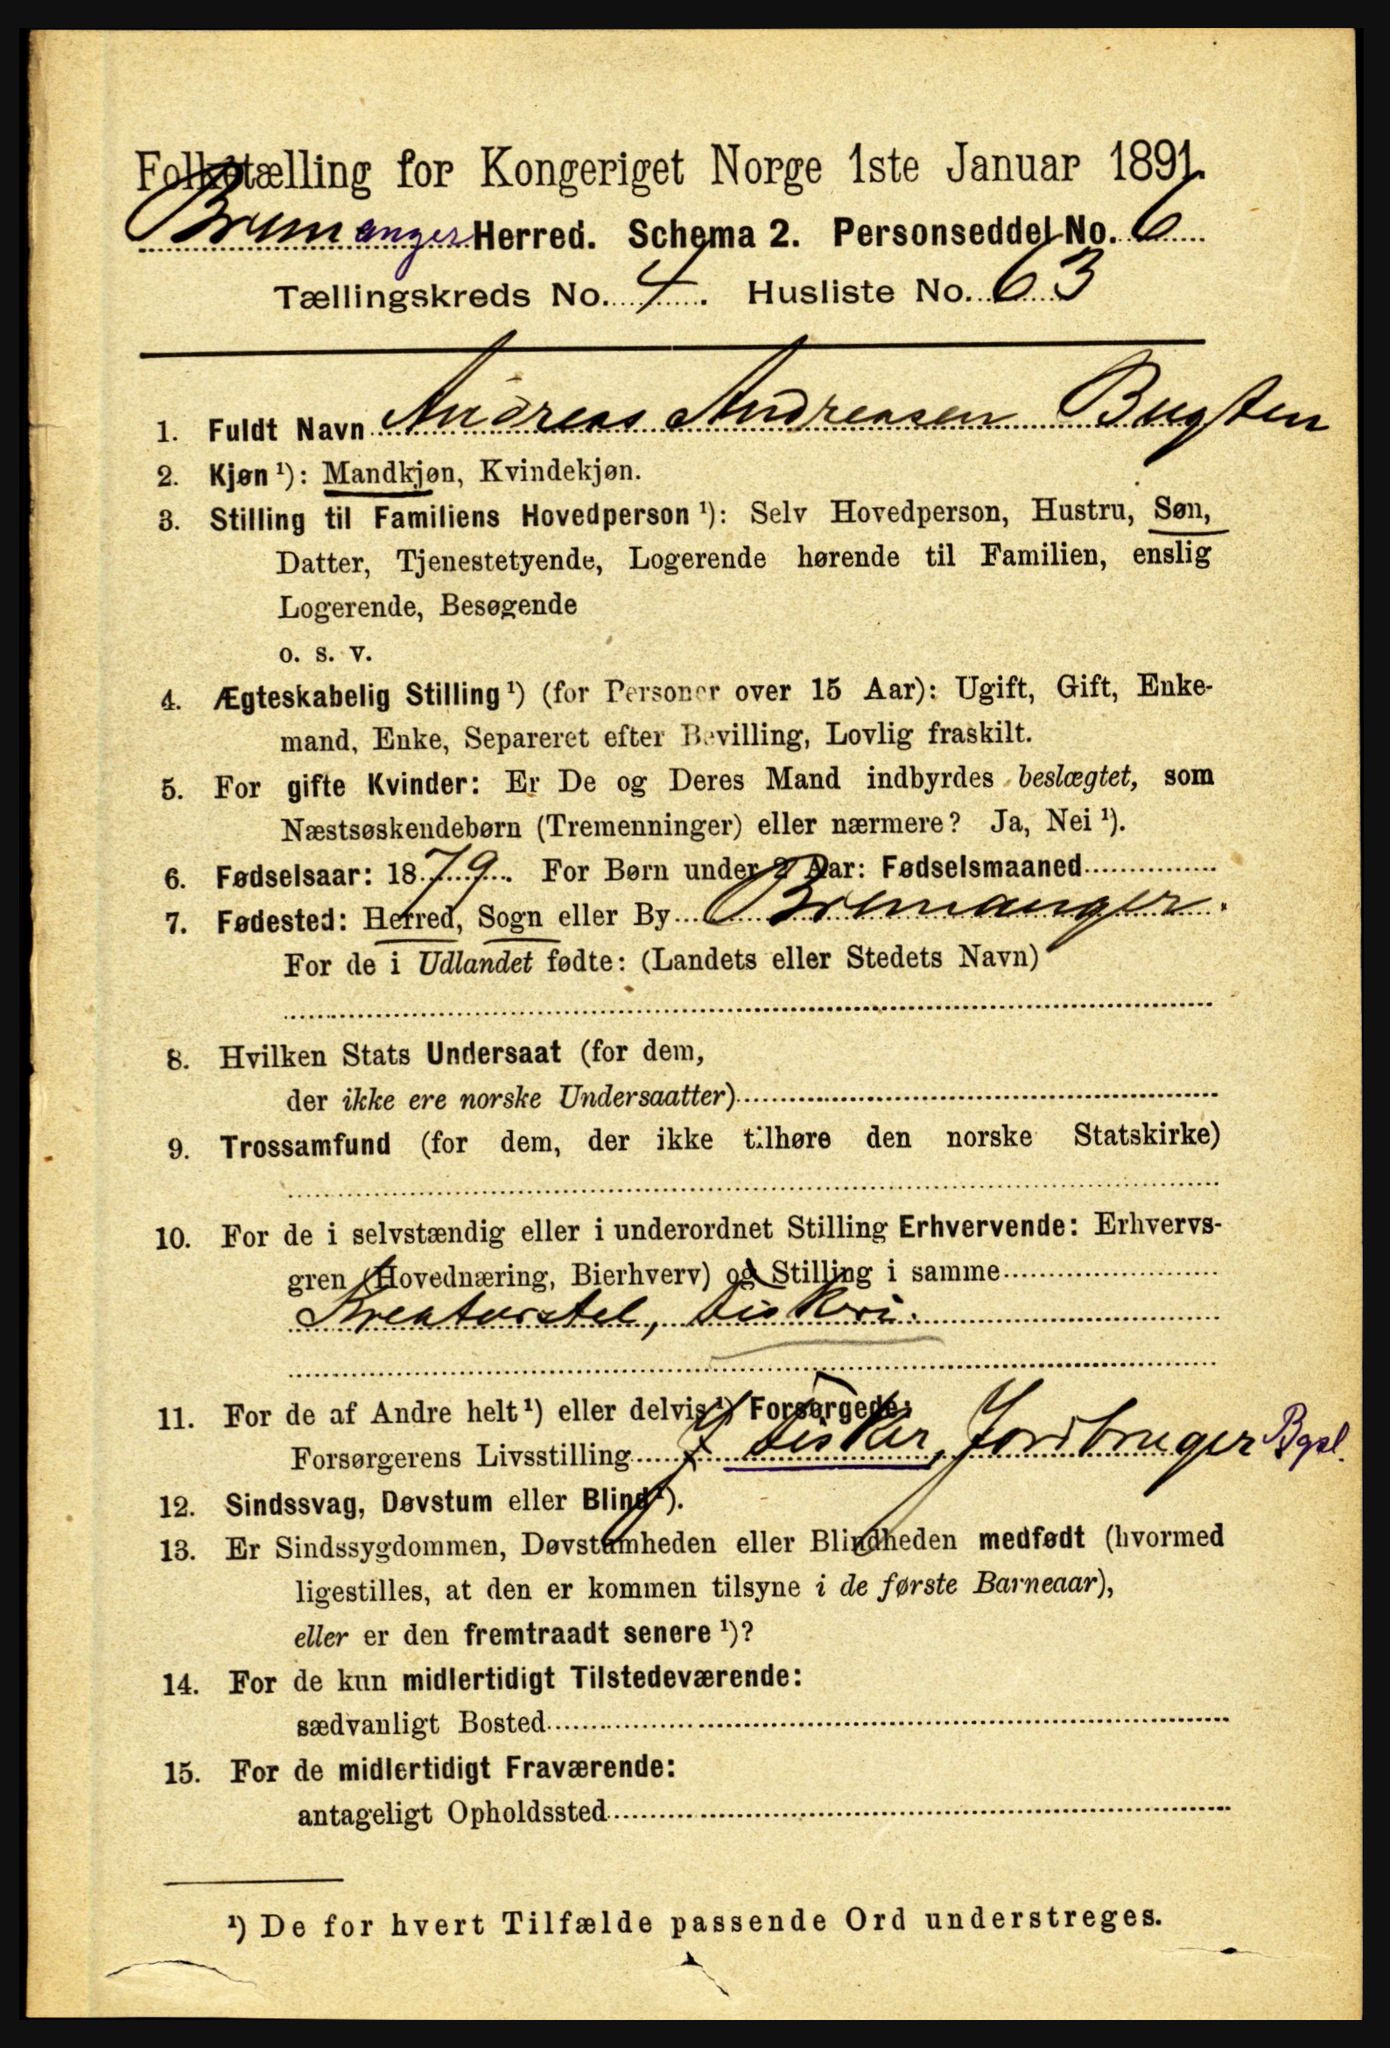 Folketælling for Kongeriget Norge 1ste Januar 1891.
Bremanger Herred. Schema 2. Personseddel No. 6
Tællingskreds No. 4. Husliste No. 63
1. Fuldt Navn Andreas Andreasen Bugten
2. Kjøn ¹): Mandkjøn, Kvindekjøn.
3. Stilling til Familiens Hovedperson ¹): Selv Hovedperson, Hustru, Søn,
Datter, Tjenestetyende, Logerende hørende til Familien, enslig
Logerende, Besøgende
o. s. v.
4. Ægteskabelig Stilling ¹) (for Personer over 15 Aar): Ugift, Gift, Enke-
mand, Enke, Separeret efter Bevilling, Lovlig fraskilt.
5. For gifte Kvinder: Er De og Deres Mand indbyrdes beslægtet, som
Næstsøskendebørn (Tremenninger) eller nærmere? Ja, Nei ¹).
6. Fødselsaar: 1879. For Børn under 2 Aar: Fødselsmaaned
7. Fødested: Herred, Sogn eller By Bremanger.
For de i Udlandet fødte: (Landets eller Stedets Navn)
8. Hvilken Stats Undersaat (for dem,
der ikke ere norske Undersaatter)
9. Trossamfund (for dem, der ikke tilhøre den norske Statskirke)
10. For de i selvstændig eller i underordnet Stilling Erhvervende: Erhvervs-
gren (Hovednæring, Bierhverv) og Stilling i samme
Kreaturstel, Fiskeri.
11. For de af Andre helt ¹) eller delvis ¹) Forsørgede:
Forsørgerens Livsstilling Fisker, Jordbruger Bgsl.
12. Sindssvag, Døvstum eller Blind ¹).
13. Er Sindssygdommen, Døvstumheden eller Blindheden medfødt (hvormed
ligestilles, at den er kommen tilsyne i de første Barneaar),
eller er den fremtraadt senere ¹)?
14. For de kun midlertidigt Tilstedeværende:
sædvanligt Bosted
15. For de midlertidigt Fraværende:
antageligt Opholdssted
¹) De for hvert Tilfælde passende Ord understreges.